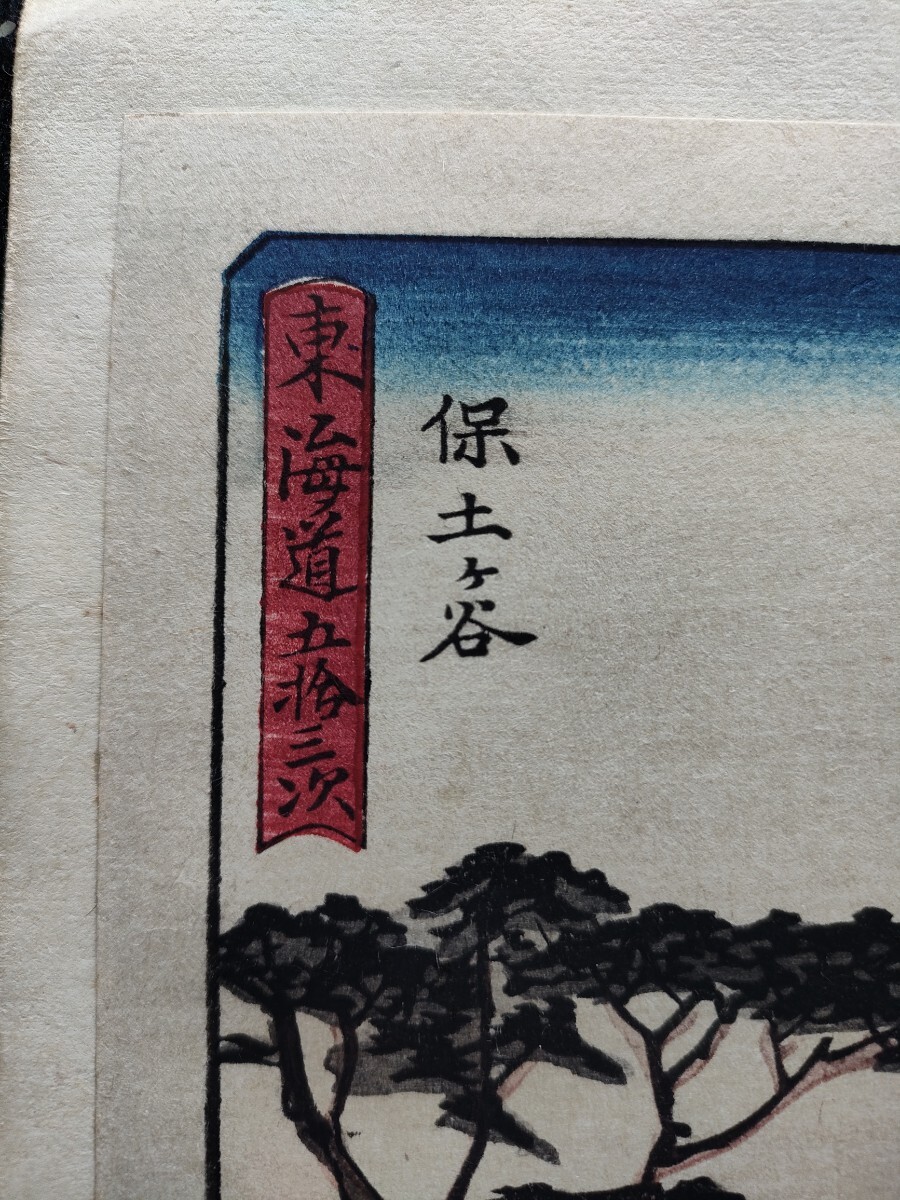 東海道五拾三次
保土ヶ谷